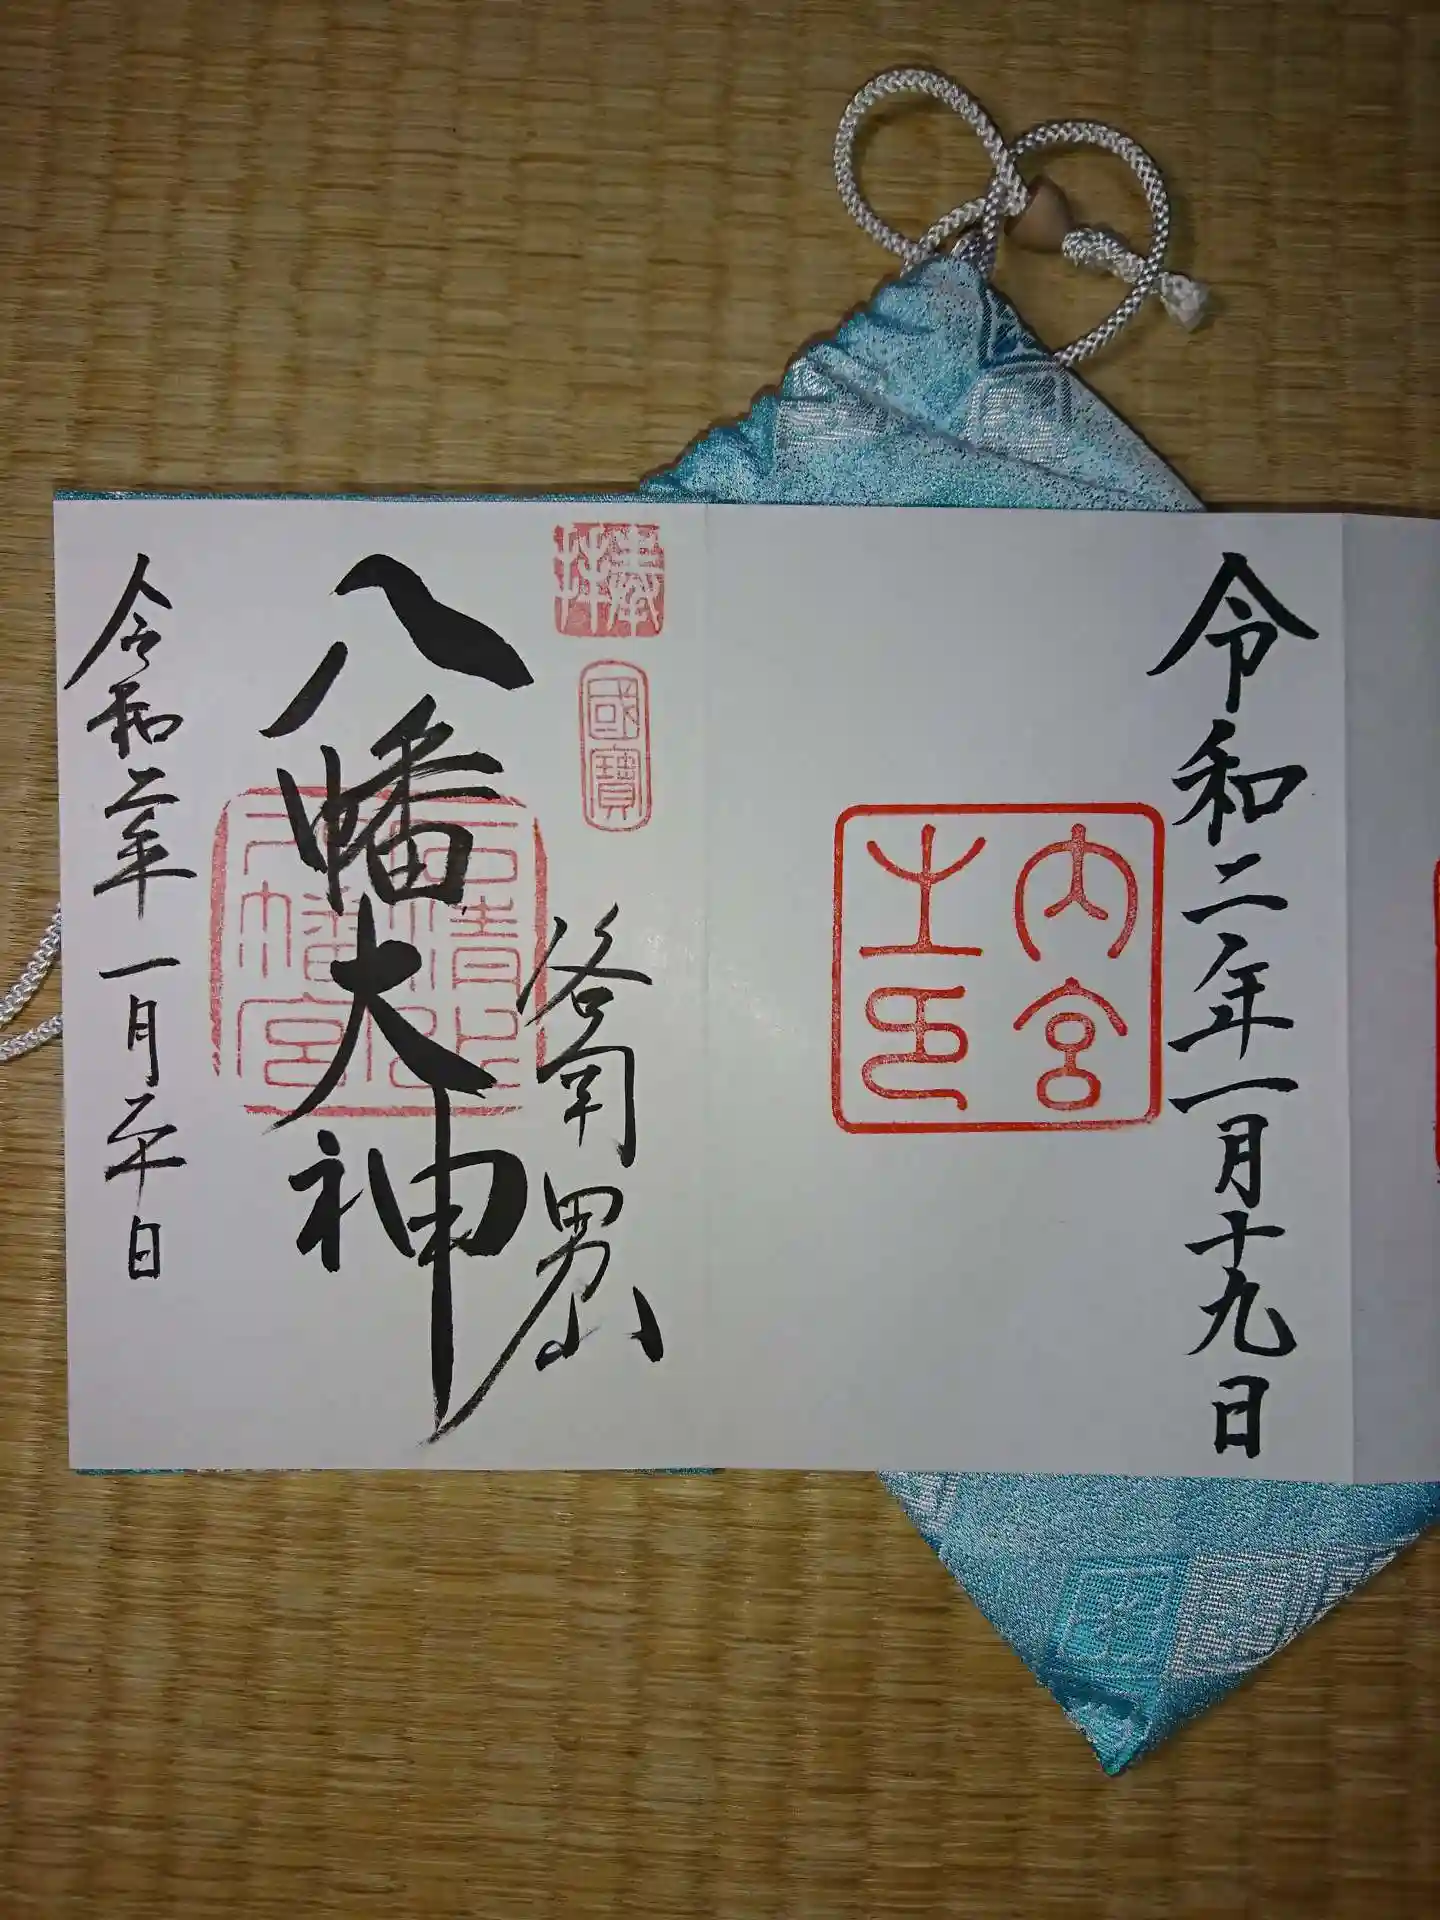 令和二年一月十九日
内宮
之印
奉拝
國寶
洛南男山
八幡大神
石清水
八幡宮
令和二年一月二十日